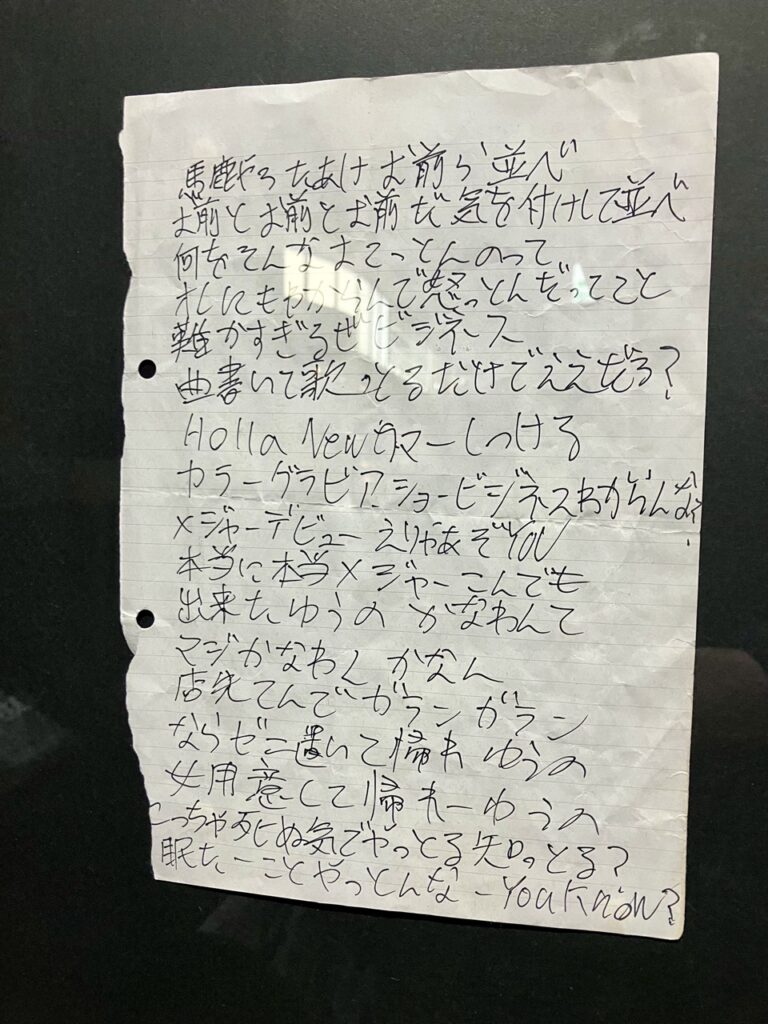 馬鹿やろたあけ お前ら 並べ
お前とお前とお前だ 気を付けして並べ
何をそんなよてっとんのって
オレにもわからんで怒っとんだってこと
難かすぎるぜビジネス
曲書いて歌っとるだけでええだろ?
Holla New しつける
カラーグラビア ショービジネスわからんな?
メジャーデビュー えりゃあぞYOU
本当に本当メジャーこんでも
出来たゆうの かなわんて
マジかなわん かなん
店先てんでガランガラン
ならゼニ置いて帰れ ゆうの
女用意して帰れーゆうの
こっちゃ死ぬ気でやっとる 知っとる?
眠たーことやっとんなーYou Know?